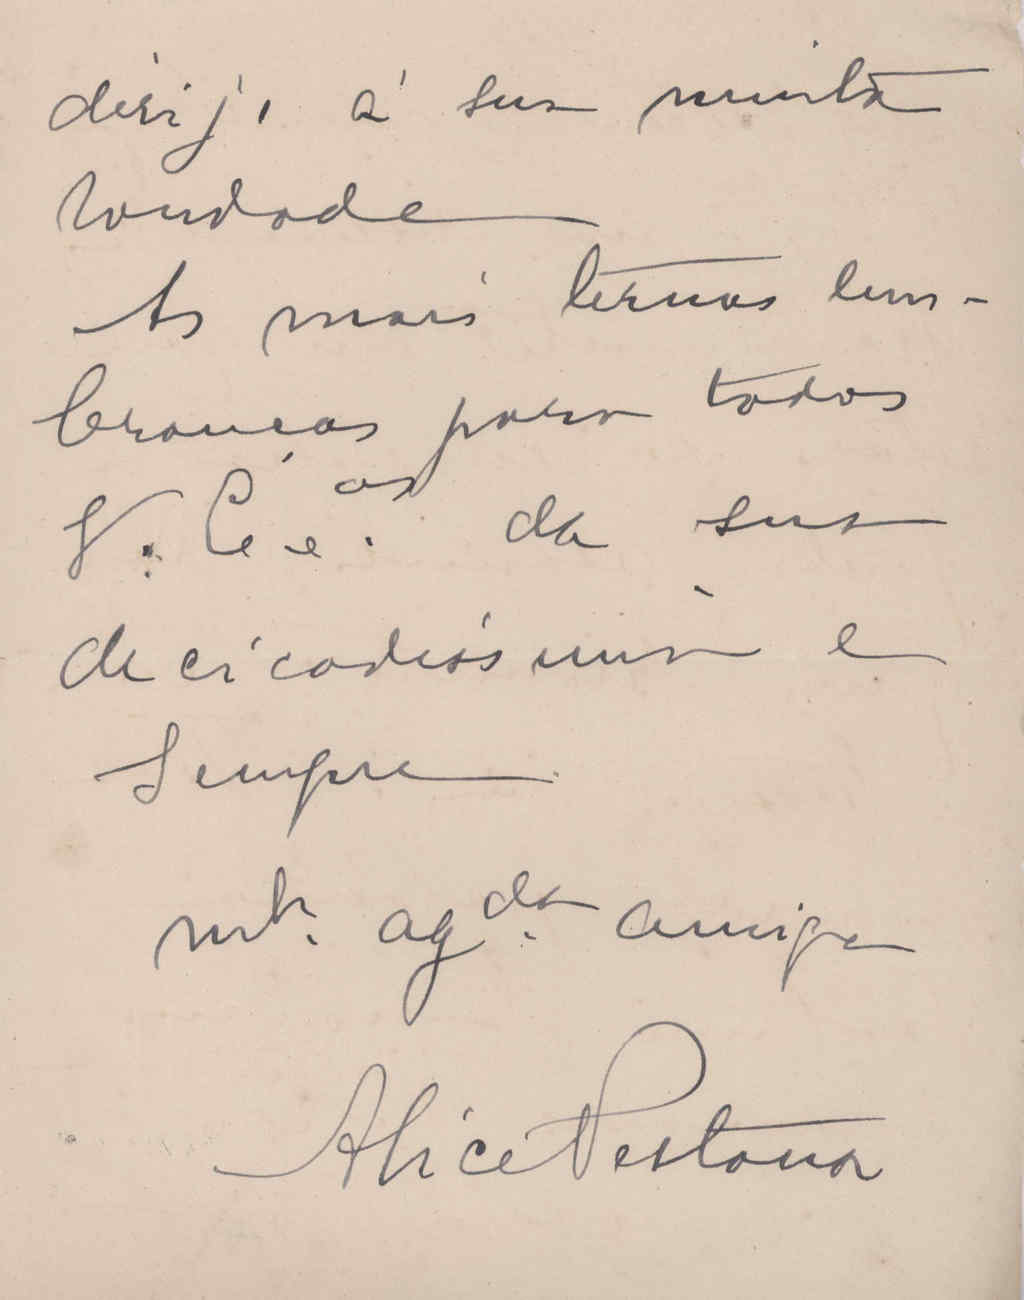 dirijo á sua muita
bondade
As mais ternas lem-
branças para todos
V. Ex.as da sua
dedicadissima e
sempre
mt. agda. amiga
Alice Pestana